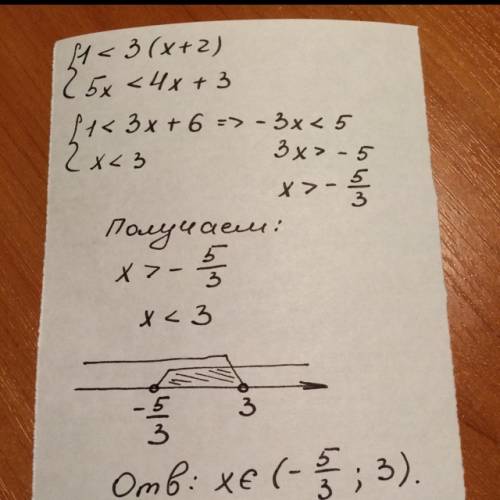 {1 < 3(x+2)
{5x < 4x + 3
{1 < 3x + 6 => -3x < 5
{x < 3 3x > -5
x > - 5/3
Получаем:
x > - 5/3
x < 3
- 5/3 3
Отв: x∈(- 5/3 ; 3).